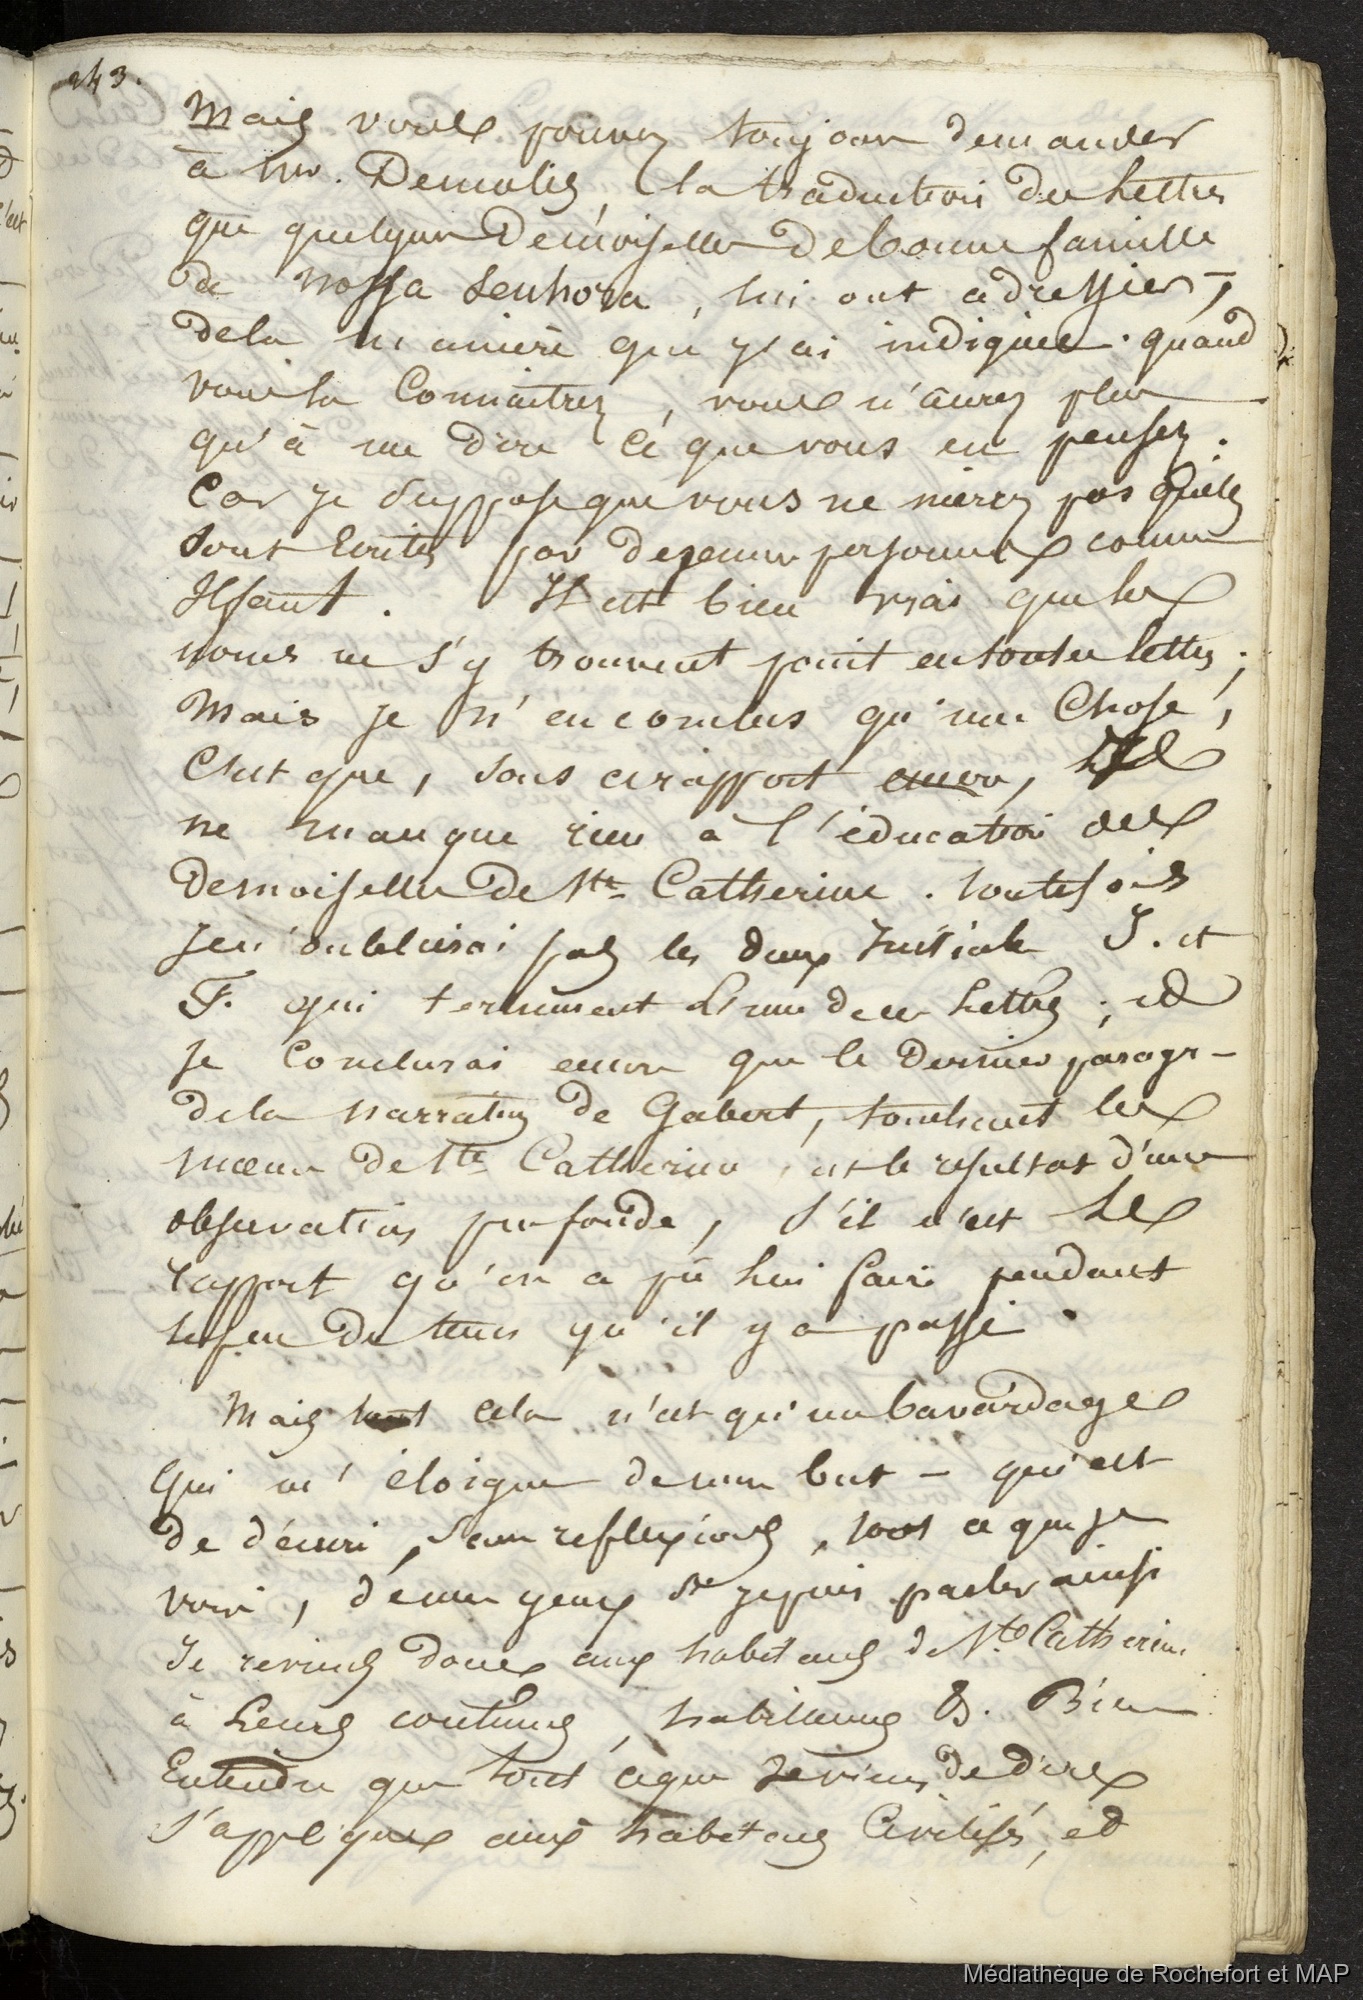 243.
Mais vous pouvez toujours demander
à Mr. Demolis, la traduction des Lettres
que quelques Demoiselles de bonne famille
de Nossa Senhora, lui ont adressées,
de la maniere que j'ai indiquée. quand
vous la Connaitrez, vous n'aurez plus
qu'à me dire ce que vous en pensez.
Car je suppose que vous ne nierez pas qu'elles
sont Ecrites par de jeunes personnes comme
Il faut. Il est bien vrai que les
noms ne s'y trouvent point en toutes lettres;
Mais je n'en conclus qu'une Chose,
C'est que, sous ce rapport encore, Il
ne manque rien à l'éducation des
Demoiselles de Ste Catherine. toutefois
Je n'oublierai pas les deux Initiales J. et
F. qui terminent L'une de ces Lettres; et
je Conclurai encore que le Dernier paragr-
de la narration de Gobert, touchant les
mœurs de Ste Catherine, est le resultat d'une
observation profonde, s'il n'est Le
rapport qu'on a pû lui faire pendant
le peu de tems qu'il y a passé.
Mais tout cela n'est qu'un bavardage
qui m'éloigne de mon but - qui est
de décrire, sans reflexions, tout ce que je
vois, de mes yeux si je puis parler ainsi
Je reviens donc aux habitans de Ste Catherine
à Leurs coutumes, habillemens &. Bien
Entendu que tout ce que je viens de dire
s'applique aux habitans Civilisés, et
Médiathèque de Rochefort et MAP